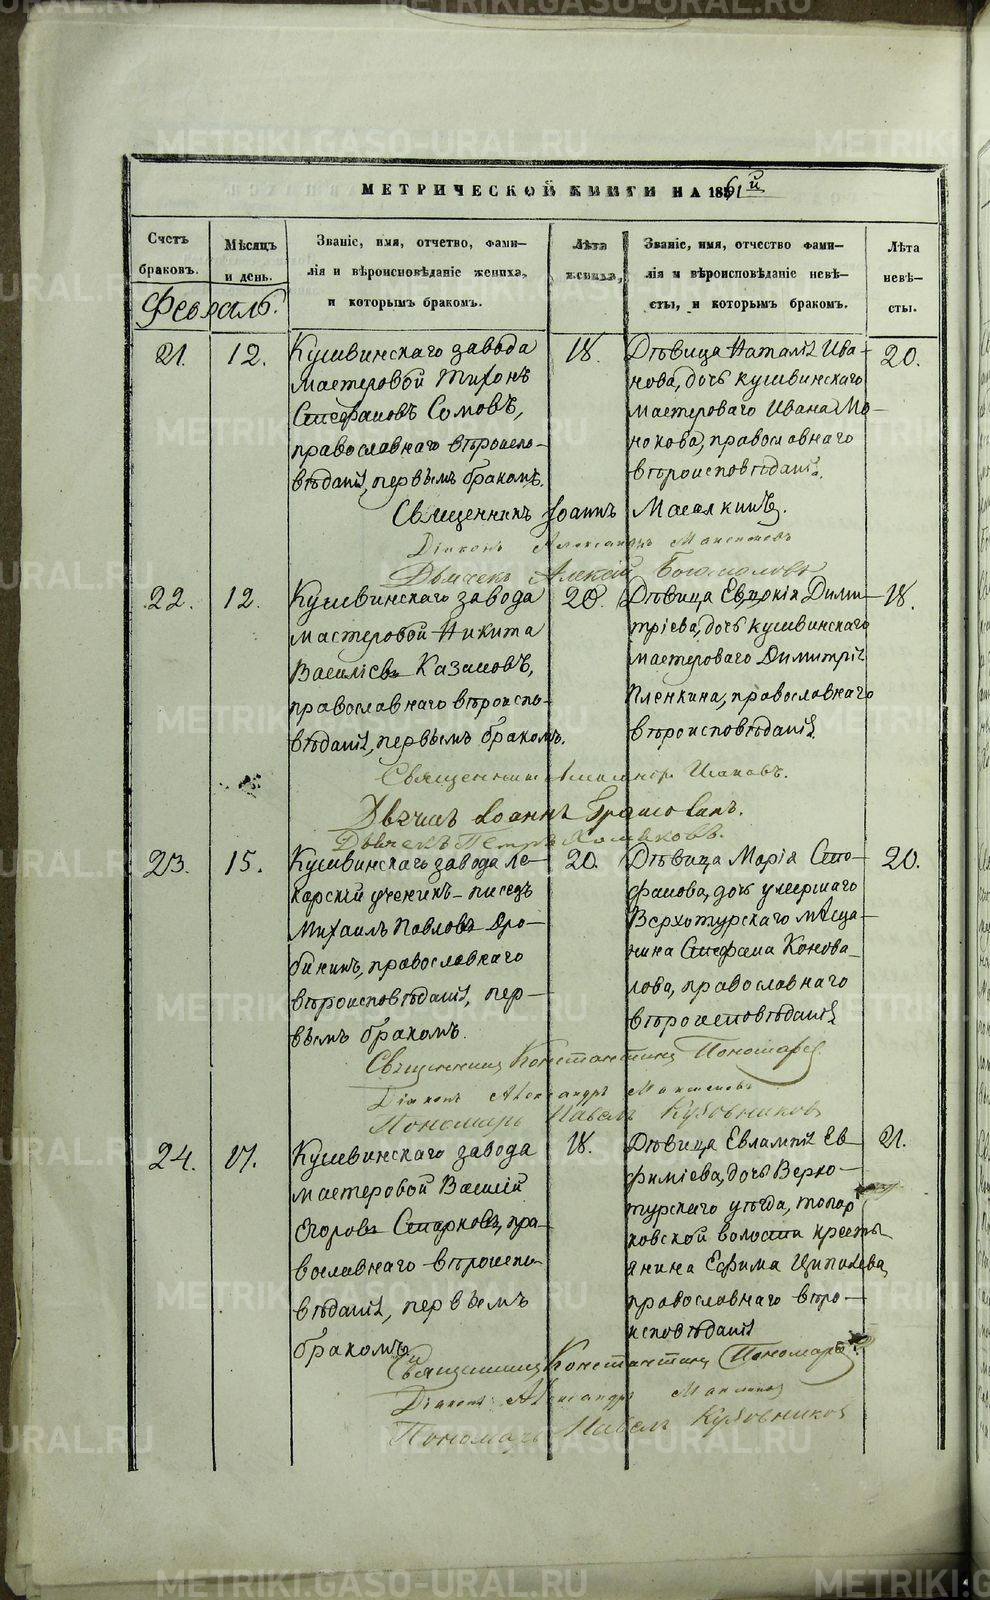 МЕТРИЧЕСКОЙ КНИГИ НА 1861й
Счетъ браковъ.
Мѣсяцъ и день.
Званіе, имя, отчетво, фами-
лія и вѣроисповѣданіе жениха,
и которымъ бракомъ.
Лѣта жениха,
Званіе, имя, отчество фами-
лія и вѣроисповѣданіе невѣ-
сты, и которымъ бракомъ.
Лѣта невѣ-
сты.
Февраль.
21.
12.
Кушвинскаго завода
мастеровой Тихонъ
Стефановъ Сомовъ,
православнаго вѣроиспо-
вѣданія, первымъ бракомъ.
18.
Дѣвица Наталія Ива-
нова, дочь кушвинскаго
мастероваго Ивана Мо-
нокова, православнаго
вѣроисповѣданія.
20.
Священникъ Іоаннъ Масалкинъ.
Діаконъ Александръ
Дьячекъ Алексій Богомоловъ
22.
12.
Кушвинскаго завода
мастеровой Никита
Василіевъ Казановъ,
православнаго вѣроиспо-
вѣданія, первымъ бракомъ.
20.
Дѣвица Евдокія Дими-
тріева, дочь кушвинскаго
мастероваго Димитрія
Пленкина, православнаго
вѣроисповѣданія
18.
Священникъ Александръ
Іоаннъ
Дьячекъ Петръ Хомяковъ.
23.
15.
Кушвинскаго завода ле-
карскій ученикъ-писецъ
Михаилъ Павловъ Дро-
бининъ, православнаго
вѣроисповѣданія, пер-
вымъ бракомъ.
20.
Дѣвица Марія Сте-
фанова, дочь умершаго
Верхотурскаго мѣща-
нина Стефана Конова-
лова, православнаго
вѣроисповѣданія
20.
Священникъ Константинъ Пономаревъ
Діаконъ Александръ
Пономарь Павелъ Кубовниковъ
24.
17.
Кушвинскаго завода
мастеровой Василій
Егоровъ Старковъ, пра-
вославнаго вѣроиспо-
вѣданія, первымъ
бракомъ.
18.
Дѣвица Евлампія Ев-
фиміева, дочь Верхо-
турскаго уѣзда, топор
ковской волости кресть
янина Ефима Ципилева,
православнаго вѣро-
исповѣданія
21.
Священникъ Константинъ Пономаревъ
Діаконъ Александръ
Пономарь Павелъ Кубовниковъ
METRIKI.GASO-URAL.RU